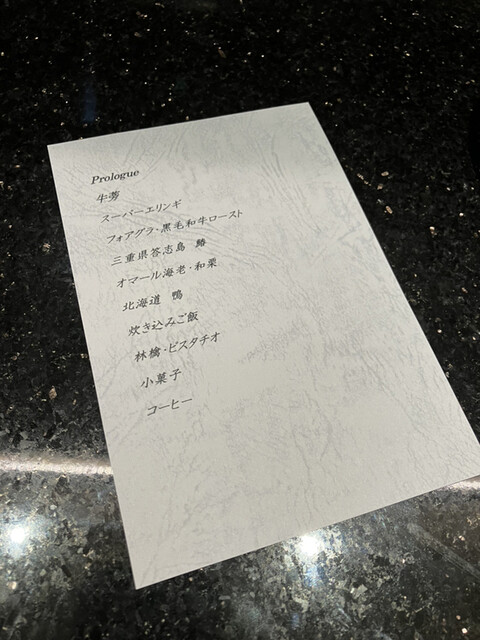 Prologue
牛蒡
スーパーエリンギ
フォアグラ・黒毛和牛ロースト
三重県答志島　鰆
オマール海老・和栗
北海道　鴨
炊き込みご飯
林檎・ピスタチオ
小菓子
コーヒー